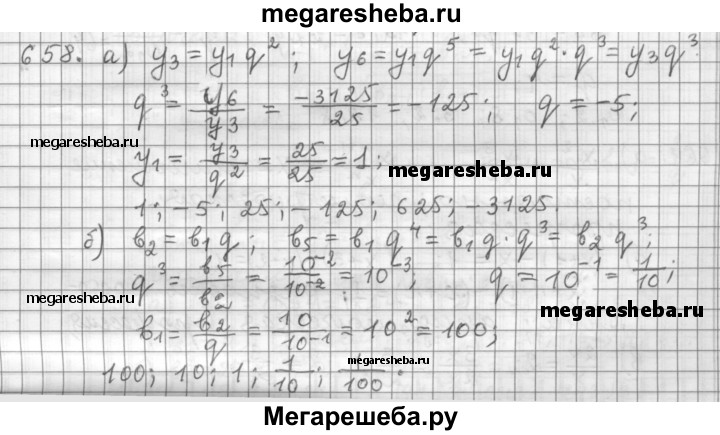 megaresheba.ru
658. а) y₃ = y₁q²; y₆ = y₁q⁵ = y₁q²·q³ = y₃q³
q³ = y₆/y₃ = -3125/25 = -125; q = -5;
megaresheba.ru
y₁ = y₃/q² = 25/25 = 1;
megaresheba.ru
1; -5; 25; -125; 625; -3125.
б) b₂ = b₁q; b₅ = b₁q⁴ = b₁q·q³ = b₂q³;
q³ = b₅/b₂ = 10⁻²/10⁻² = 10⁻³; q = 10⁻¹ = 1/10;
megaresheba.ru
megaresheba.ru
b₁ = b₂/q = 10/10⁻¹ = 10² = 100;
megaresheba.ru
100; 10; 1; 1/10; 1/100.
Мегарешеба.ру